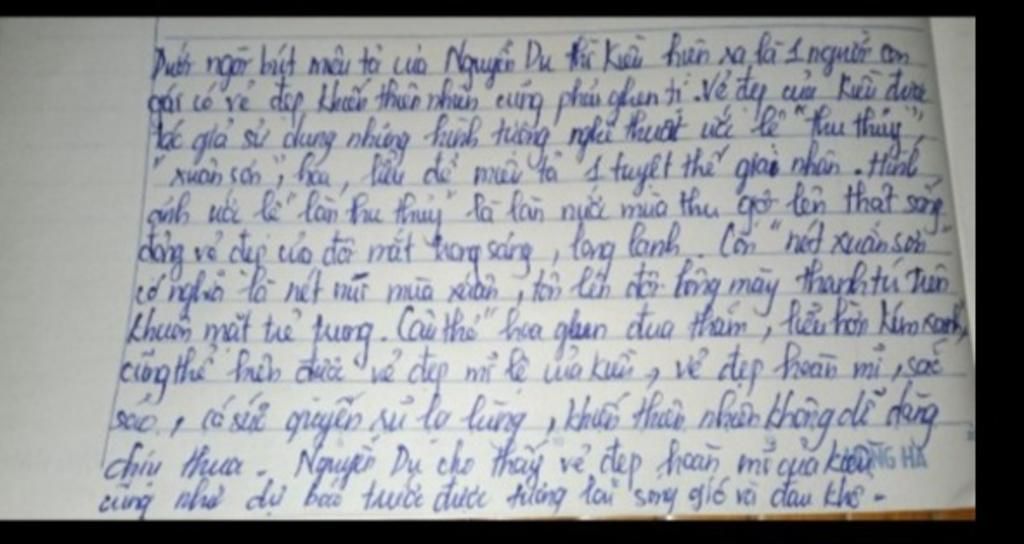 Dưới ngòi bút miêu tả của Nguyễn Du thì Kiều hiện ra là 1 người con
gái có vẻ đẹp khiến thiên nhiên cũng phải ghen tị. Vẻ đẹp của Kiều được
tác giả sử dụng những hình tượng nghệ thuật ước lệ "thu thủy",
"xuân sơn", hoa, liễu để miêu tả 1 tuyệt thế giai nhân. Hình
ảnh ước lệ "làn thu thủy" là làn nước mùa thu gợi lên thật sống
động vẻ đẹp của đôi mắt trong sáng, long lanh. Còn "nét xuân sơn"
có nghĩa là nét núi mùa xuân, tôn lên đôi lông mày thanh tú trên
khuôn mặt trẻ trung. Câu thơ "hoa ghen đua thắm, liễu hờn kém xanh",
cũng thể hiện được vẻ đẹp mĩ lệ của kiều, vẻ đẹp hoàn mĩ, sắc
sảo, có sức quyến rũ lạ lùng, khiến thiên nhiên không dễ dàng
chịu thua. Nguyễn Du cho thấy vẻ đẹp hoàn mĩ của kiều
cũng như dự báo trước được tương lai sóng gió và đau khổ.
HỒNG HÀ